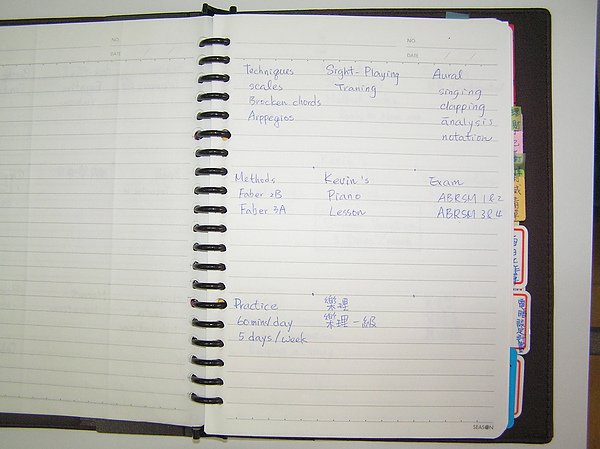 NO.
DATE
NO.
DATE
Techniques
scales
Brocken chords
Arppegios
Sight-Playing
Traning
Aural
singing
clapping
analysis
notation
Methods
Faber 2B
Faber 3A
Kevin's
Piano
Lesson
Exam
ABRSM 1&2
ABRSM 3&4
Practice
60min/day
5 days/week
樂理
樂理一級
SEASON